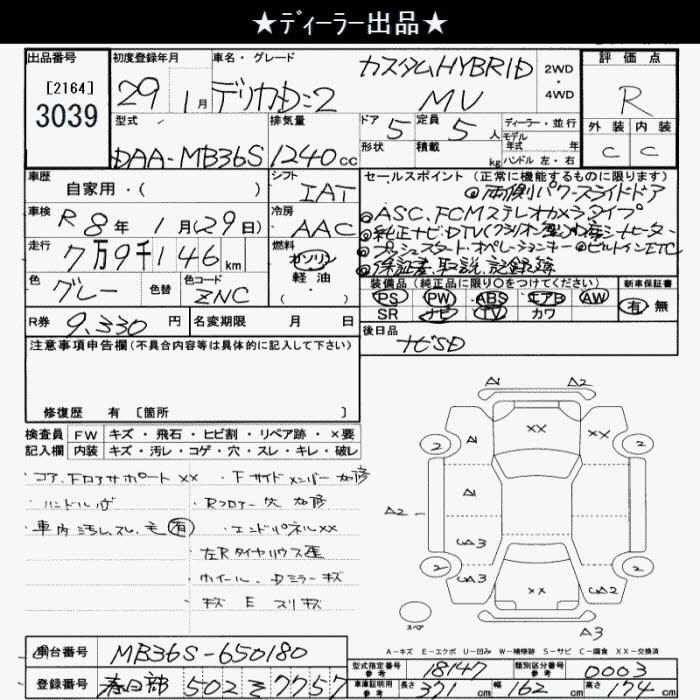 ★ディーラー出品★
出品番号
[2164]
3039
初度登録年月
29
1月
車名・グレード
デリカD:2
カスタムHYBRID
MV
2WD
・
4WD
評価点
R
型式
DAA-MB36S
排気量
1240cc
ドア 5
形状
定員 5 人
積載 kg
ディーラー・並行
モデル
年式 年
ハンドル 左・右
外装 内装
C C
車歴
自家用・( )
シフト
IAT
車検 R8年 1月(29日)
冷房
AAC
走行
7万9千146km
燃料
ガソリン
軽油
色
グレー
色替
色コード
ZNC
セールスポイント(正常に機能するものに限ります)
◎両側パワースライドドア
◎ASC、FCMステレオカメラタイプ
◎プッシュスタート・オペレーションキー ◎ビルトインETC
◎保証書、取説、記録簿
装備品(純正品に限り○をつけてください)
新車保証書
PS PW ABS エアB AW
SR ナビ TV カワ
有 無
R券 9,330円
名変期限 月 日
後日品
ナビSD
注意事項申告欄(不具合内容等は具体的に記入して下さい)
修復歴 有 [箇所 ]
検査員 FW キズ・飛石・ヒビ割・リペア跡・×要
記入欄 内装 キズ・汚レ・コゲ・穴・スレ・キレ・破レ
・コア、Fロアサポート XX
・Fサイドメンバー 加修
・ハンドル
・Rフロアー 加修
・車内汚レ、スレ、毛 有
・エンドパネルXX
・左Rタイヤハウス
・ホイール、Dミラーキズ
・キズ E スリキズ
A1 A2
XX
A1
2 2
A1
A2
A3
2 2
A3 XX A2
スペア
A3
A-キズ E-エクボ U-凹み W-補修跡 S-サビ C-腐食 XX-交換済
車台番号 MB36S-650180
登録番号 春日部 502 そ 7757
型式指定番号
参考
18147
類別区分番号
参考
0003
車庫証明用
参考
長さ 371cm
幅 162cm
高さ 174cm